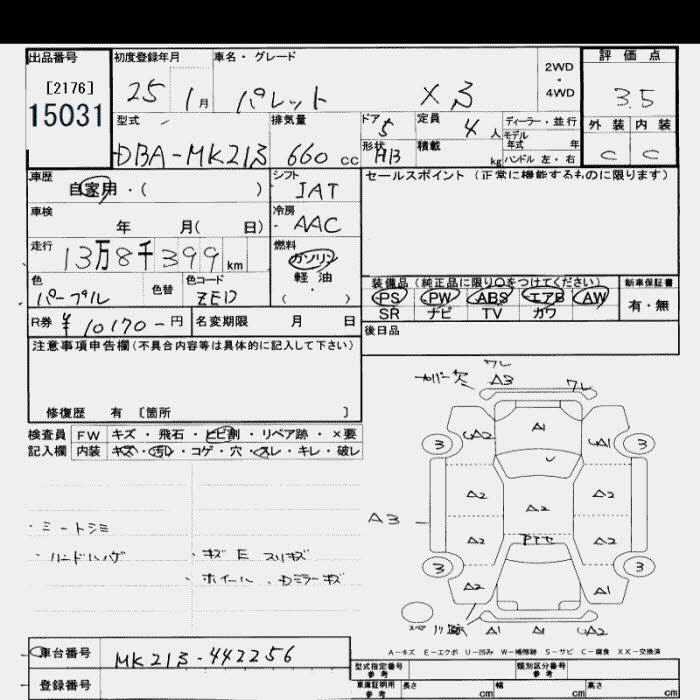 出品番号 初度登録年月 車名・グレード 2WD・4WD 評価点
[2176] 25年 1月 パレット X3 3.5
15031
型式 排気量 ドア 5 定員 4人 ディーラー・並行 外装 内装
モデル年式 年
DBA-MK21B 660cc 形状 HB 積載 kg ハンドル 左・右 C C
車歴 自家用・( ) シフト IAT セールスポイント (正常に機能するものに限ります)
車検 年 月( 日) 冷房 AAC
走行 13万8千399km 燃料 ガソリン 軽油 ( )
色 パープル 色替 色コード ZED
装備品 (純正品に限り○をつけてください) 新車保証書
PS PW ABS エアB AW 有・無
SR ナビ TV カワ
R券 ¥10170-円 名変期限 月 日 後日品
注意事項申告欄(不具合内容等は具体的に記入して下さい)
修復歴 有 [箇所 ]
検査員 FW キズ・飛石・ヒビ割・リペア跡・×要
記入欄 内装 キズ・汚レ・コゲ・穴・スレ・キレ・破レ
ワレ
カバー欠 A3 ワレ
UA2 A1 UA1
3 3
U
A2 A2
A2
A3
A2 A2
3 3
A2 A1
・シートシミ
・キズ E スリキズ
・ホイール、Dミラーキズ
A1 A1 UA2
A-キズ E-エクボ U-凹み W-補修跡 S-サビ C-腐食 XX-交換済
車台番号 MK21B-442256 型式指定番号 参考 類別区分番号 参考
登録番号 車庫証明用 参考 長さ cm 幅 cm 高さ cm